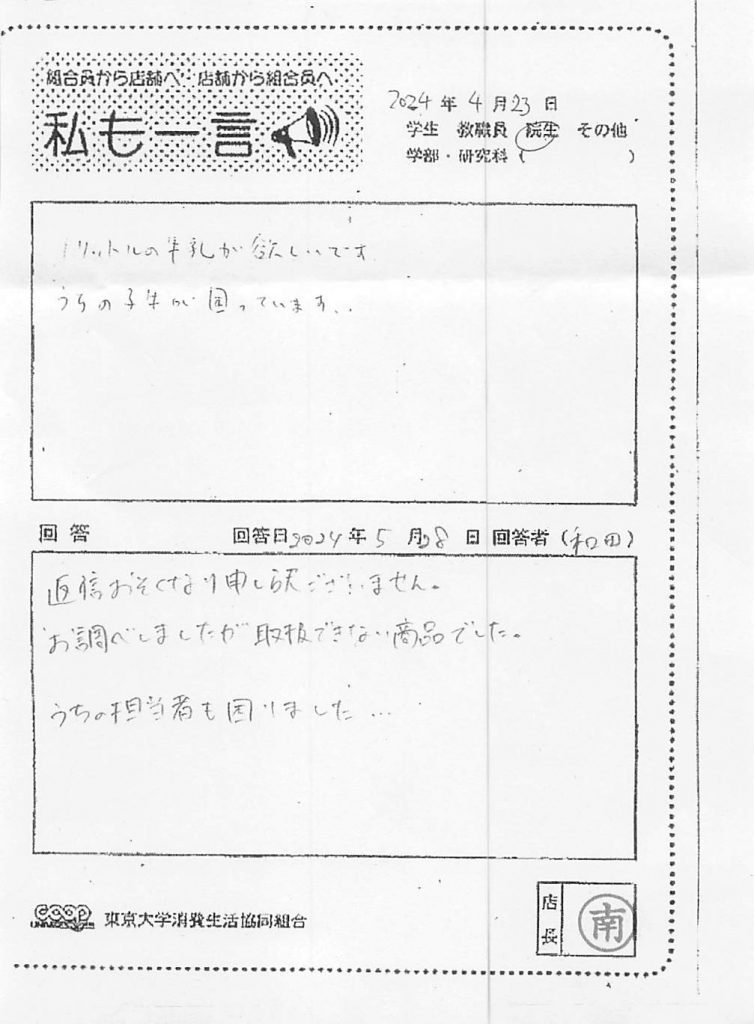 組合員から店舗へ・店舗から組合員へ
私も一言
2024年4月23日
学生 教職員 院生 その他
学部・研究科( )
1リットルの牛乳が欲しいです
うちの子牛が困っています..
回答 回答日2024年5月28日 回答者(和田)
返信おそくなり申し訳ございません。
お調べしましたが取扱できない商品でした。
うちの担当者も困りました…
coop
UNIVERSITIES
東京大学消費生活協同組合
店長
南